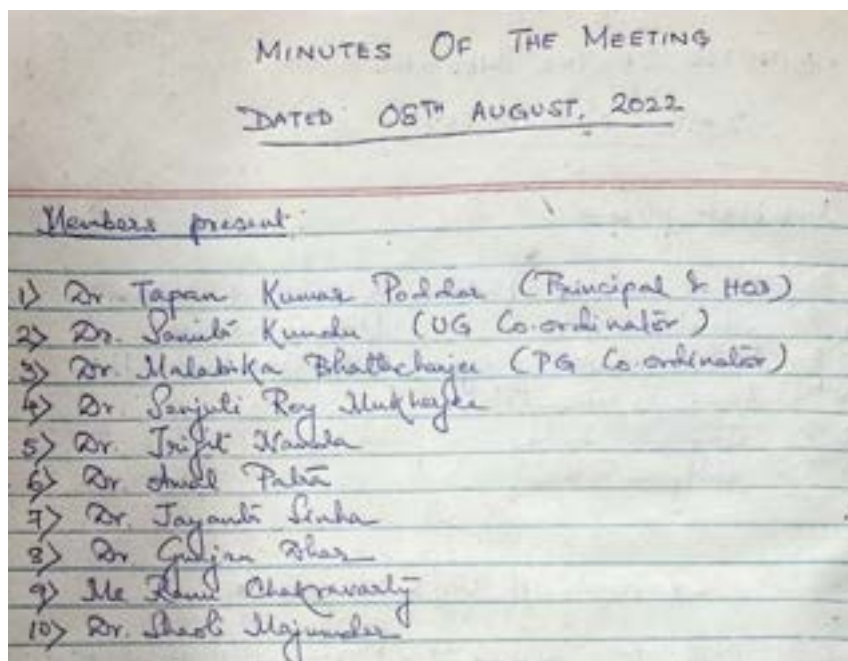 MINUTES OF THE MEETING
DATED 05TH AUGUST, 2022
Members present:
1) Dr Tapan Kumar Poddar (Principal & HOD)
2) Dr. Kundu (UG Co-ordinator)
3) Dr. Malabika Bhattacharjee (PG Co-ordinator)
4) Dr. Sanjuli Roy Mukherjee
5) Dr. Nanda
6) Dr. Amal Patra
7) Dr. Jayanta Sinha
8) Dr Gunjan Dhar
9) Chakravarty
10) Dr. Shaoli Majumdar